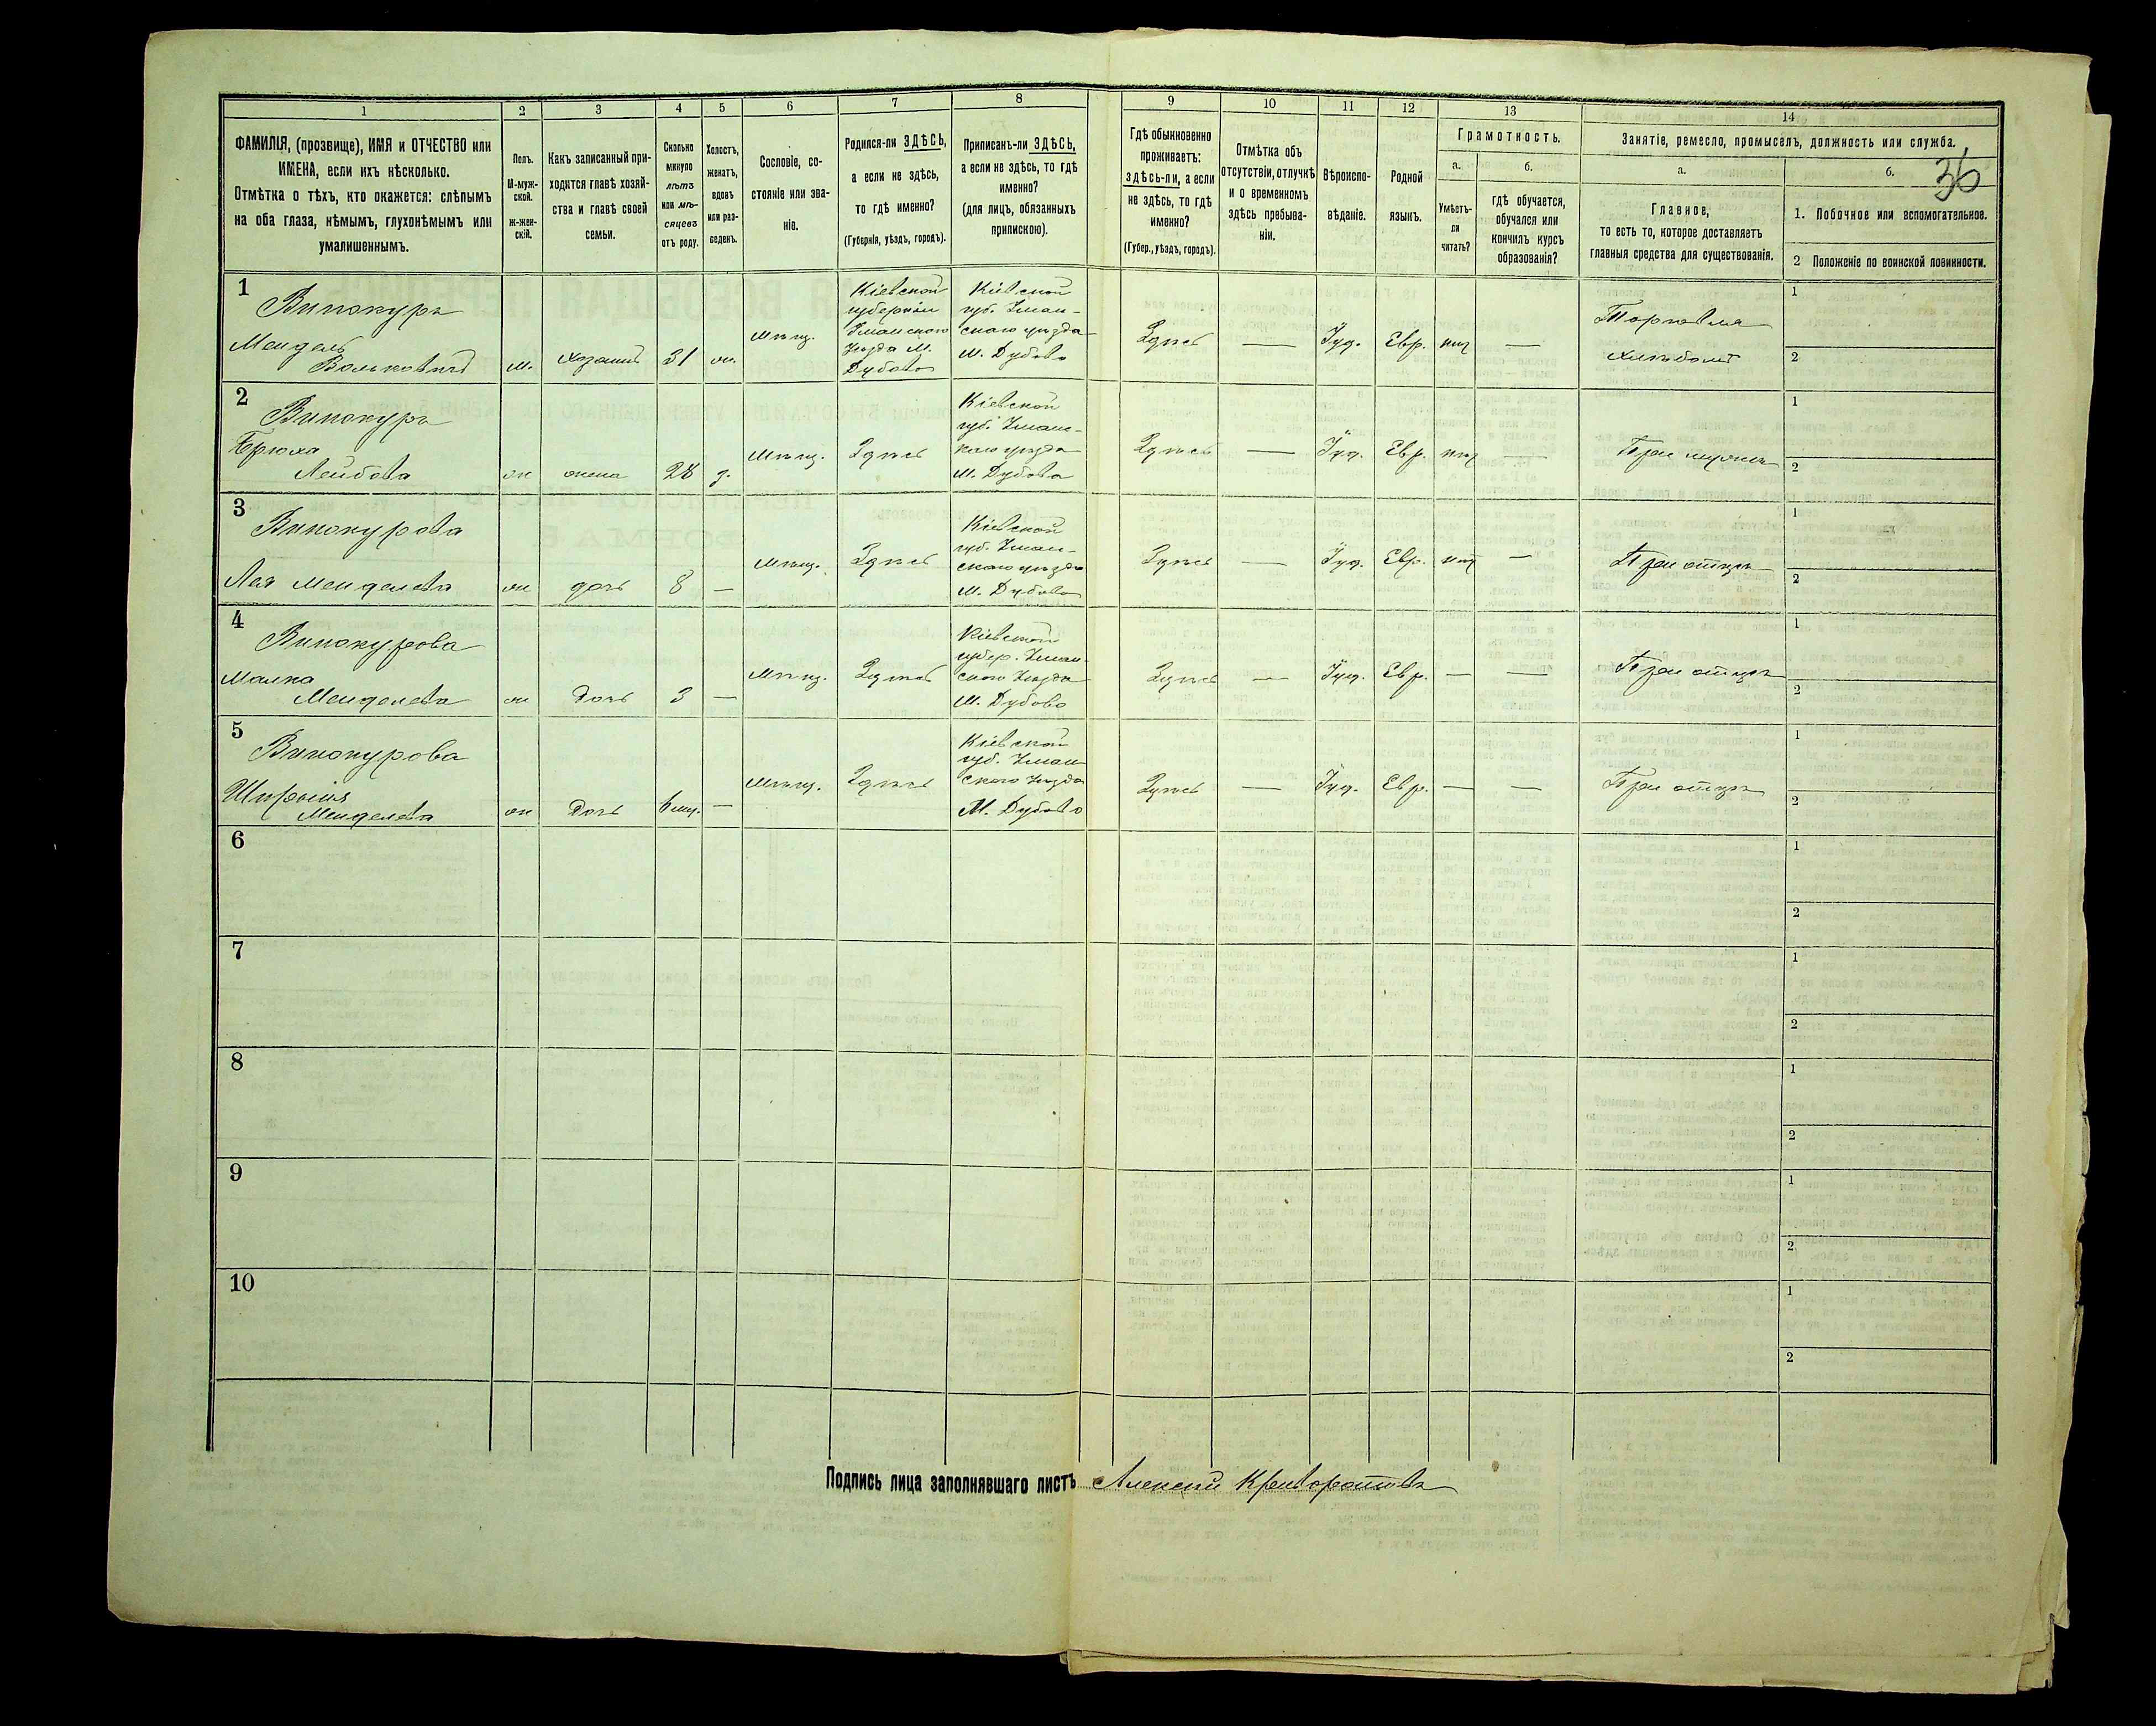 36
1
2
3
4
5
6
7
8
9
10
11
12
13
14
ФАМИЛІЯ, (прозвище), ИМЯ и ОТЧЕСТВО или
ИМЕНА, если ихъ нѣсколько.
Отмѣтка о тѣхъ, кто окажется: слѣпымъ
на оба глаза, нѣмымъ, глухонѣмымъ или
умалишеннымъ.
Полъ.
М-муж-
ской.
Ж-жен-
скій.
Какъ записанный при-
ходится главѣ хозяй-
ства и главѣ своей
семьи.
Сколько
минуло
лѣтъ
или мѣ-
сяцевъ
отъ роду.
Холостъ,
женатъ,
вдовъ
или раз-
веденъ.
Сословіе, со-
стояніе или зва-
ніе.
Родился-ли ЗДѢСЬ,
а если не здѣсь,
то гдѣ именно?
(Губернія, уѣздъ, городъ).
Приписанъ-ли ЗДѢСЬ,
а если не здѣсь, то гдѣ
именно?
(для лицъ, обязанныхъ
припискою).
Гдѣ обыкновенно
проживаетъ:
здѣсь-ли, а если
не здѣсь, то гдѣ
именно?
(Губер., уѣздъ, городъ).
Отмѣтка объ
отсутствіи, отлучкѣ
и о временномъ
здѣсь пребыва-
ніи.
Вѣроиспо-
вѣданіе.
Родной
языкъ.
Грамотность.
а.
Умѣетъ-
ли
читать?
б.
гдѣ обучается,
обучался или
кончилъ курсъ
образованія?
Занятіе, ремесло, промыселъ, должность или служба.
а.
Главное,
то есть то, которое доставляетъ
главныя средства для существованія.
б.
1. Побочное или вспомогательное.
2 Положеніе по воинской повинности.
1
Винокуръ
Мендель
Вольковичъ
м.
хозяинъ
31
ж.
мѣщ.
Кіевской
губерніи
Уманскаго
Уѣзда М.
Дубово
Кіевской
губ. Уман-
скаго уѣзда
м. Дубово
Здѣсь
—
Іуд.
Евр.
нѣт
—
Торговля
хлѣбомъ
1
2
2
Винокуръ
Брюха
Лейбова
ж
жена
28
з.
Мѣщ.
Здѣсь
Кіевской
губ. Уман-
скаго уѣзда
м. Дубова
Здѣсь
—
Іуд.
Евр.
нѣт
—
При мужѣ
1
2
3
Винокурова
Лея Менделева
ж
дочь
8
—
мѣщ.
Здѣсь
Кіевской
губ. Уман-
скаго уѣзда
м. Дубово
Здѣсь
—
Іуд.
Евр.
нѣт
—
При отцѣ
1
2
4
Винокурова
Малка
Менделева
ж
Дочь
3
—
Мѣщ.
Здѣсь
Кіевской
губер. Уман-
скаго Уѣзда
м. Дубово
Здѣсь
—
Іуд.
Евр.
—
—
При отцѣ
1
2
5
Винокурова
Менделева
ж
Дочь
6 мц.
—
Мѣщ.
Здѣсь
Кіевской
губ. Уман-
скаго Уѣзда
М. Дубово
Здѣсь
—
Іуд.
Евр.
—
—
При отцѣ
1
2
6
1
2
7
1
2
8
1
2
9
1
2
10
1
2
Подпись лица заполнявшаго листъ Алексѣй